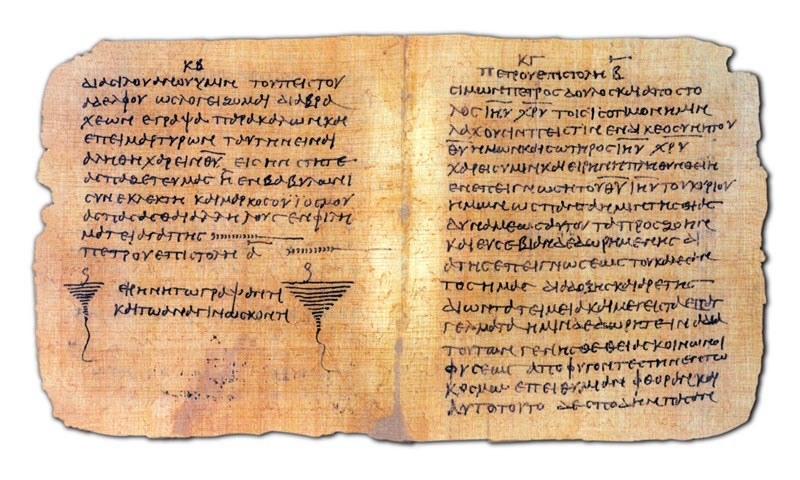 ΚΒ
ΔΙΑϹΙΛΟΥΑΝΟΥΥΜΙΝ ΤΟΥΠΕΙϹΤΟΥ
ΑΔΕΛΦΟΥ ΩϹΛΟΓΕΙΖΟΜΑΙ ΔΙΑΒΡΑ
ΧΕΩΝ ΕΓΡΑΨΑ ΠΑΡΑΚΑΛΩΝΚΑΙ
ΕΠΕΙΜΑΡΤΥΡΩΝ ΤΑΥΤΗΝΕΙΝΑΙ
ΑΛΗΘΗΧΑΡΕΙΝΘ̅Υ̅ ΕΙϹΗΝϹΤΗΤΕ
ΑϹΠΑΖΕΤΕΥΜΑϹ Η ΕΝΒΑΒΥΛΩΝΙ
ϹΥΝΕΚΛΕΚΤΗ ΚΑΙΜΑΡΚΟϹΟΥΙΟϹΜΟΥ
ΑϹΠΑϹΑϹΘΑΙΑΛΛΗΛΟΥϹΕΝΦΙΛΗ
ΜΑΤΕΙΑΓΑΠΗϹ
ΠΕΤΡΟΥΕΠΙϹΤΟΛΗ Α̅
ΕΙΡΗΝΗΤΩΓΡΑΨΑΝΤΙ
ΚΑΙΤΩΑΝΑΓΙΝΩϹΚΟΝΤΙ
ΚΓ
ΠΕΤΡΟΥΕΠΙϹΤΟΛΗ Β̅
ϹΙΜΩΝΠΕΤΡΟϹΔΟΥΛΟϹΚΑΙΑΠΟϹΤΟ
ΛΟϹΙ̅Η̅Υ̅ Χ̅Ρ̅Υ̅ ΤΟΙϹΙϹΟΤΙΜΟΝΗΜΙΝ
ΛΑΧΟΥϹΙΝΠΕΙϹΤΙΝ ΕΝΔΙΚΕΟϹΥΝΗΤΟΥ
Θ̅Υ̅ΗΜΩΝΚΑΙϹΩΤΗΡΟϹΙ̅Η̅Υ̅ Χ̅Ρ̅Υ̅
ΧΑΡΕΙϹΥΜΙΝΚΑΙΕΙΡΗΝΗΠΛΗΘΥΝΘΕΙΗ
ΕΝΕΠΕΙΓΝΩϹΗΤΟΥΘ̅Υ̅Ι̅Η̅Υ̅ΤΟΥΚΥΡΙΟΥ
ΗΜΩΝΩϹΠΑΝΤΑΗΜΙΝΤΗϹΘΙΑϹ
ΔΥΝΑΜΕΩϹΑΥΤΟΥΤΑΠΡΟϹΖΩΗΝ
ΚΑΙΕΥϹΕΒΙΑΝΔΕΔΩΡΗΜΕΝΗϹ ΔΙ
ΑΤΗϹΕΠΕΙΓΝΩϹΕΩϹΤΟΥΚΑΛΕϹΑΝ
ΤΟϹΗΜΑϹ ΔΙΑΔΟΞΗϹΚΑΙΑΡΕΤΗϹ
ΔΙΩΝΤΑΤΕΙΜΕΙΑΚΑΙΜΕΓΕΙϹΤΑΕΠΑΓ
ΓΕΛΜΑΤΑΗΜΙΝΔΕΔΩΡΗΤΕΙΝΑΔΙΑ
ΤΟΥΤΩΝ ΓΕΝΗϹΘΕΘΕΙΑϹΚΟΙΝΩΝΟΙ
ΦΥϹΕΩϹ ΑΠΟΦΥΓΟΝΤΕϹΤΗΝΕΝΤΩ
ΚΟϹΜΩ ΕΠΕΙΘΥΜΙΑΝ ΦΘΟΡΑΝ ΚΑΙ
ΑΥΤΟΤΟΥΤΟ ΔΕϹΠΟΔΗΝΠΑϹΑΝ